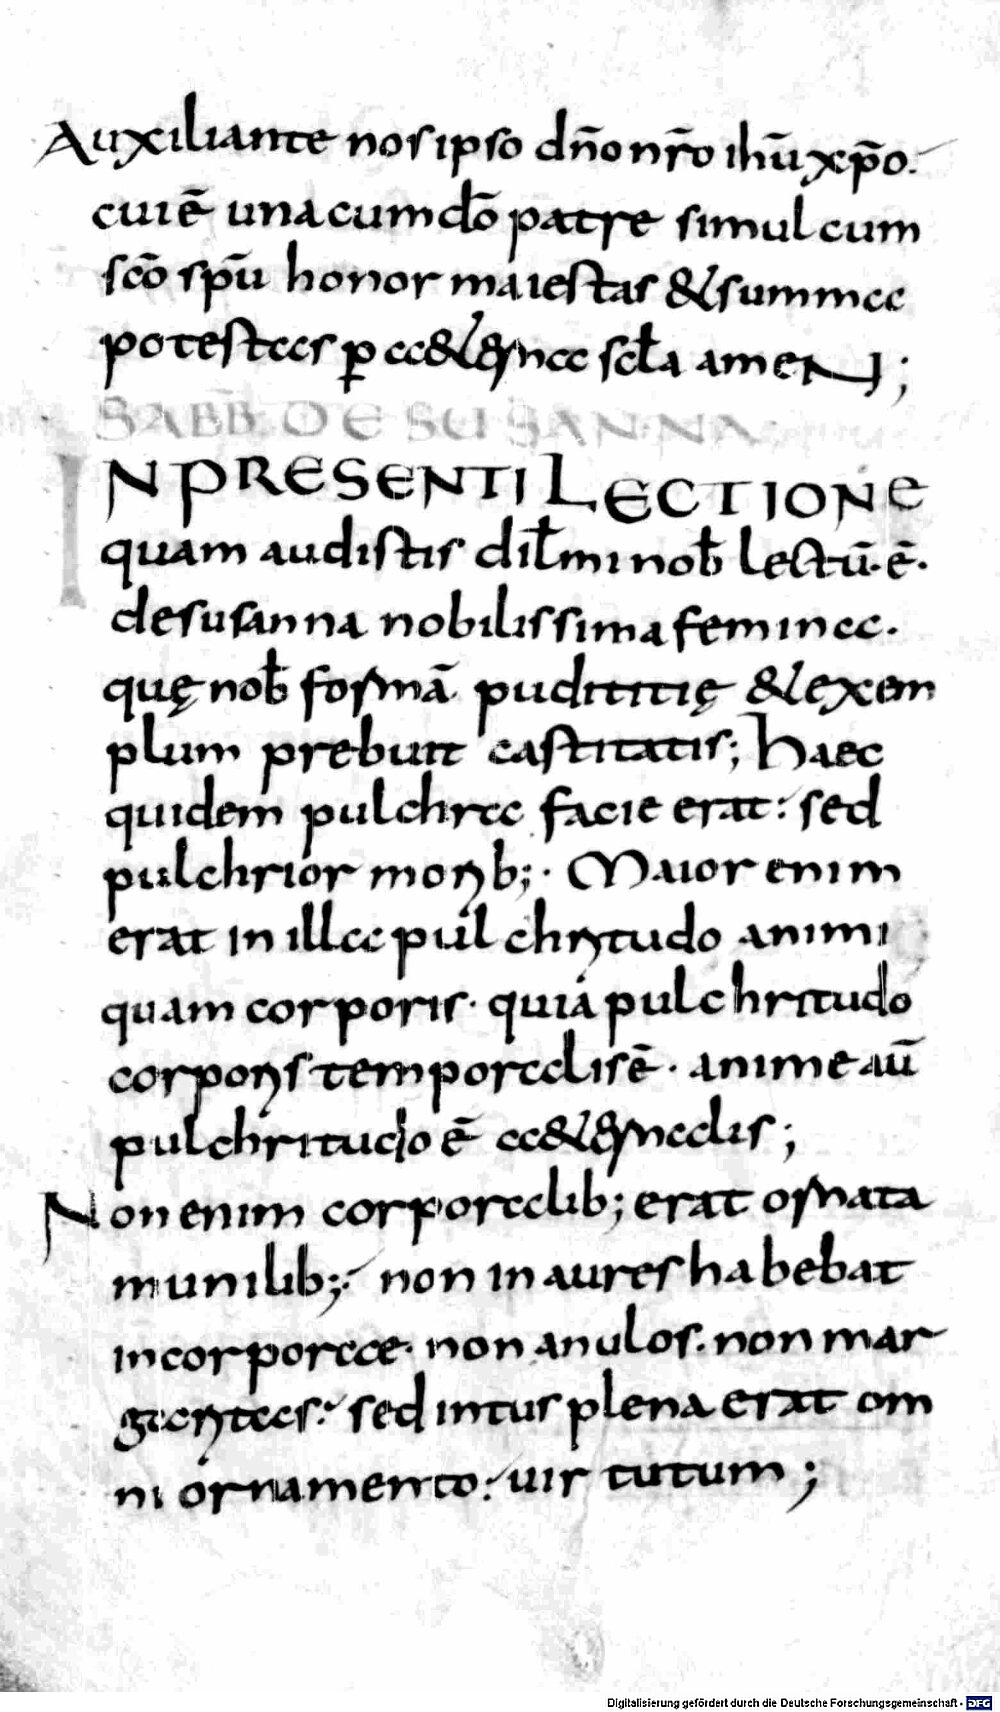 Auxiliante nos ipso dn̄o nr̄o ihū xp̄o.
cui ē una cum dō patre simul cum
scō spū honor maiestas & summa
potestas p̲ a&erna scł̄a amen;
SABB̄. DE SUSANNA.
IN PRESENTI LECTIONE
quam audistis dił̄mi nob̄ lectū. ē.
de susanna nobilissima femina.
quę nob̄ formā puditiię & exem
plum prebuit castitatis; Haec
quidem pulchra facie erat: sed
pulchrior morib;. Maior enim
erat in illa pulchritudo animi
quam corporis. quia pulchritudo
corporis temporalis ē. anime aū
pulchritudo ē a&ernalis;
Non enim corporalib; erat ornata
munilib;: non in aures habebat
in corpore. non anulos. non mar
garitas: sed intus plena erat om
ni ornamento: uir tutum;
Digitalisierung gefördert durch die Deutsche Forschungsgemeinschaft - DFG